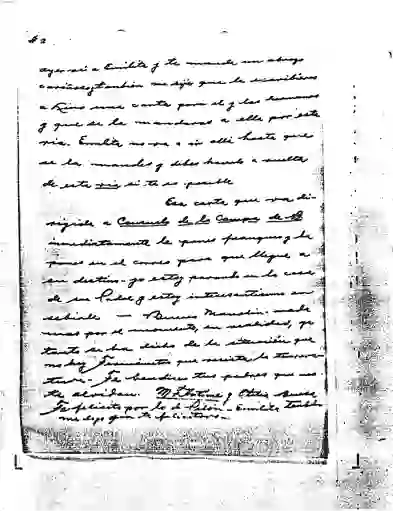 #2
ayer vi a Emilito y te manda un abrazo
cariñoso, también me dijo que le escribieras
a Lino una carta para el y las hermanos
y que se la mandaras a ella por esta
via. Emilito no va a ir alli hasta que
se la mandes y debes hacerlo a vuelta
de esta via si te es posible
Esa carta que va di-
rigida a Consuelo de la Campa de
inmediatamente le pones franqueo y la
pones en el correo para que llegue a
su destino - yo estoy parando en la casa
de su Padre y estoy interesantisimo en
saberlo — Bueno Manolin: nada
mas por el momento, en realidad, ya
tanto se ha dicho de la situación que
no hay que resista la
Te bendicen tus padres que no
te olvidan. y
Te felicito por lo de - Emilito
me dijo que te felicitara -